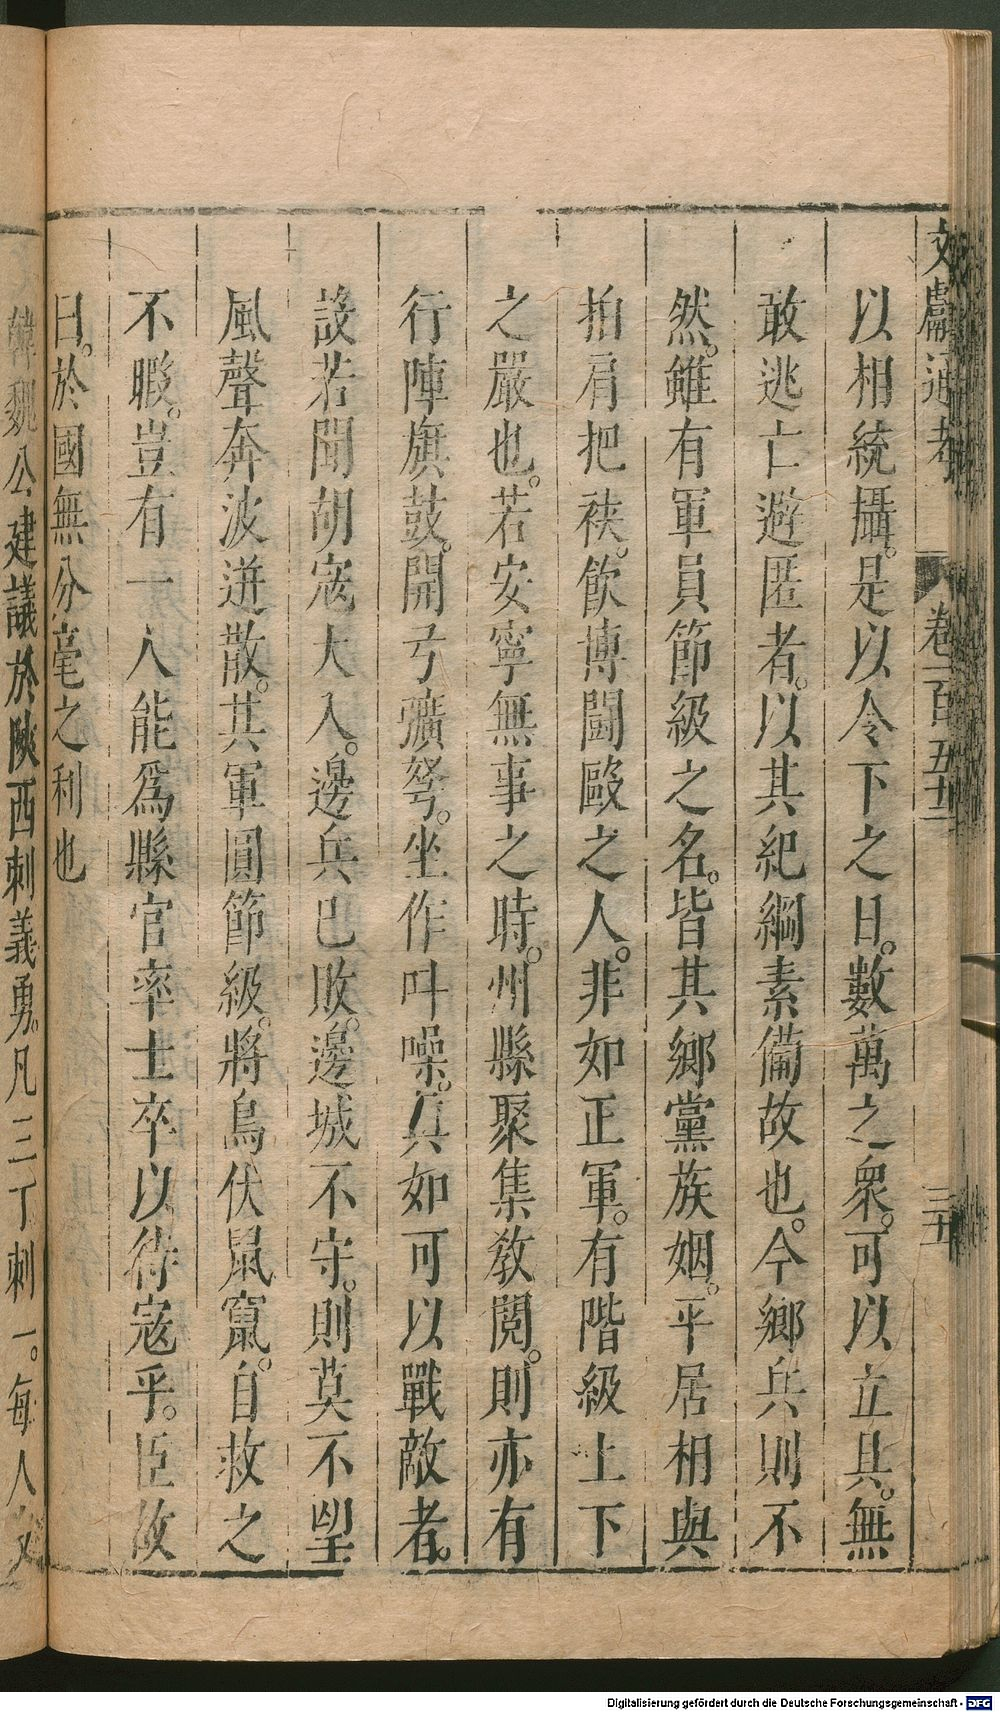 文獻通考 卷一百五十三 三五
以相統攝。是以令下之日。數萬之衆。可以立具。無
敢逃亡避匿者。以其紀綱素備故也。今鄉兵則不
然。雖有軍員節級之名。皆其鄉黨族姻。平居相與
拍肩把袂。飲博鬪毆之人。非如正軍。有階級上下
之嚴也。若安寧無事之時。州縣聚集敎閱。則亦有
行陣旗鼓。開弓彍弩。坐作叫噪。真如可以戰敵者。
設若聞胡寇大入。邊兵已敗。邊城不守。則莫不望
風聲奔波迸散。其軍員節級。將鳥伏鼠竄。自救之
不暇。豈有一人能爲縣官率士卒以待寇乎。臣故
曰。於國無分毫之利也
韓魏公建議於陝西刺義勇。凡三丁刺一。每人
Digitalisierung gefördert durch die Deutsche Forschungsgemeinschaft - DFG